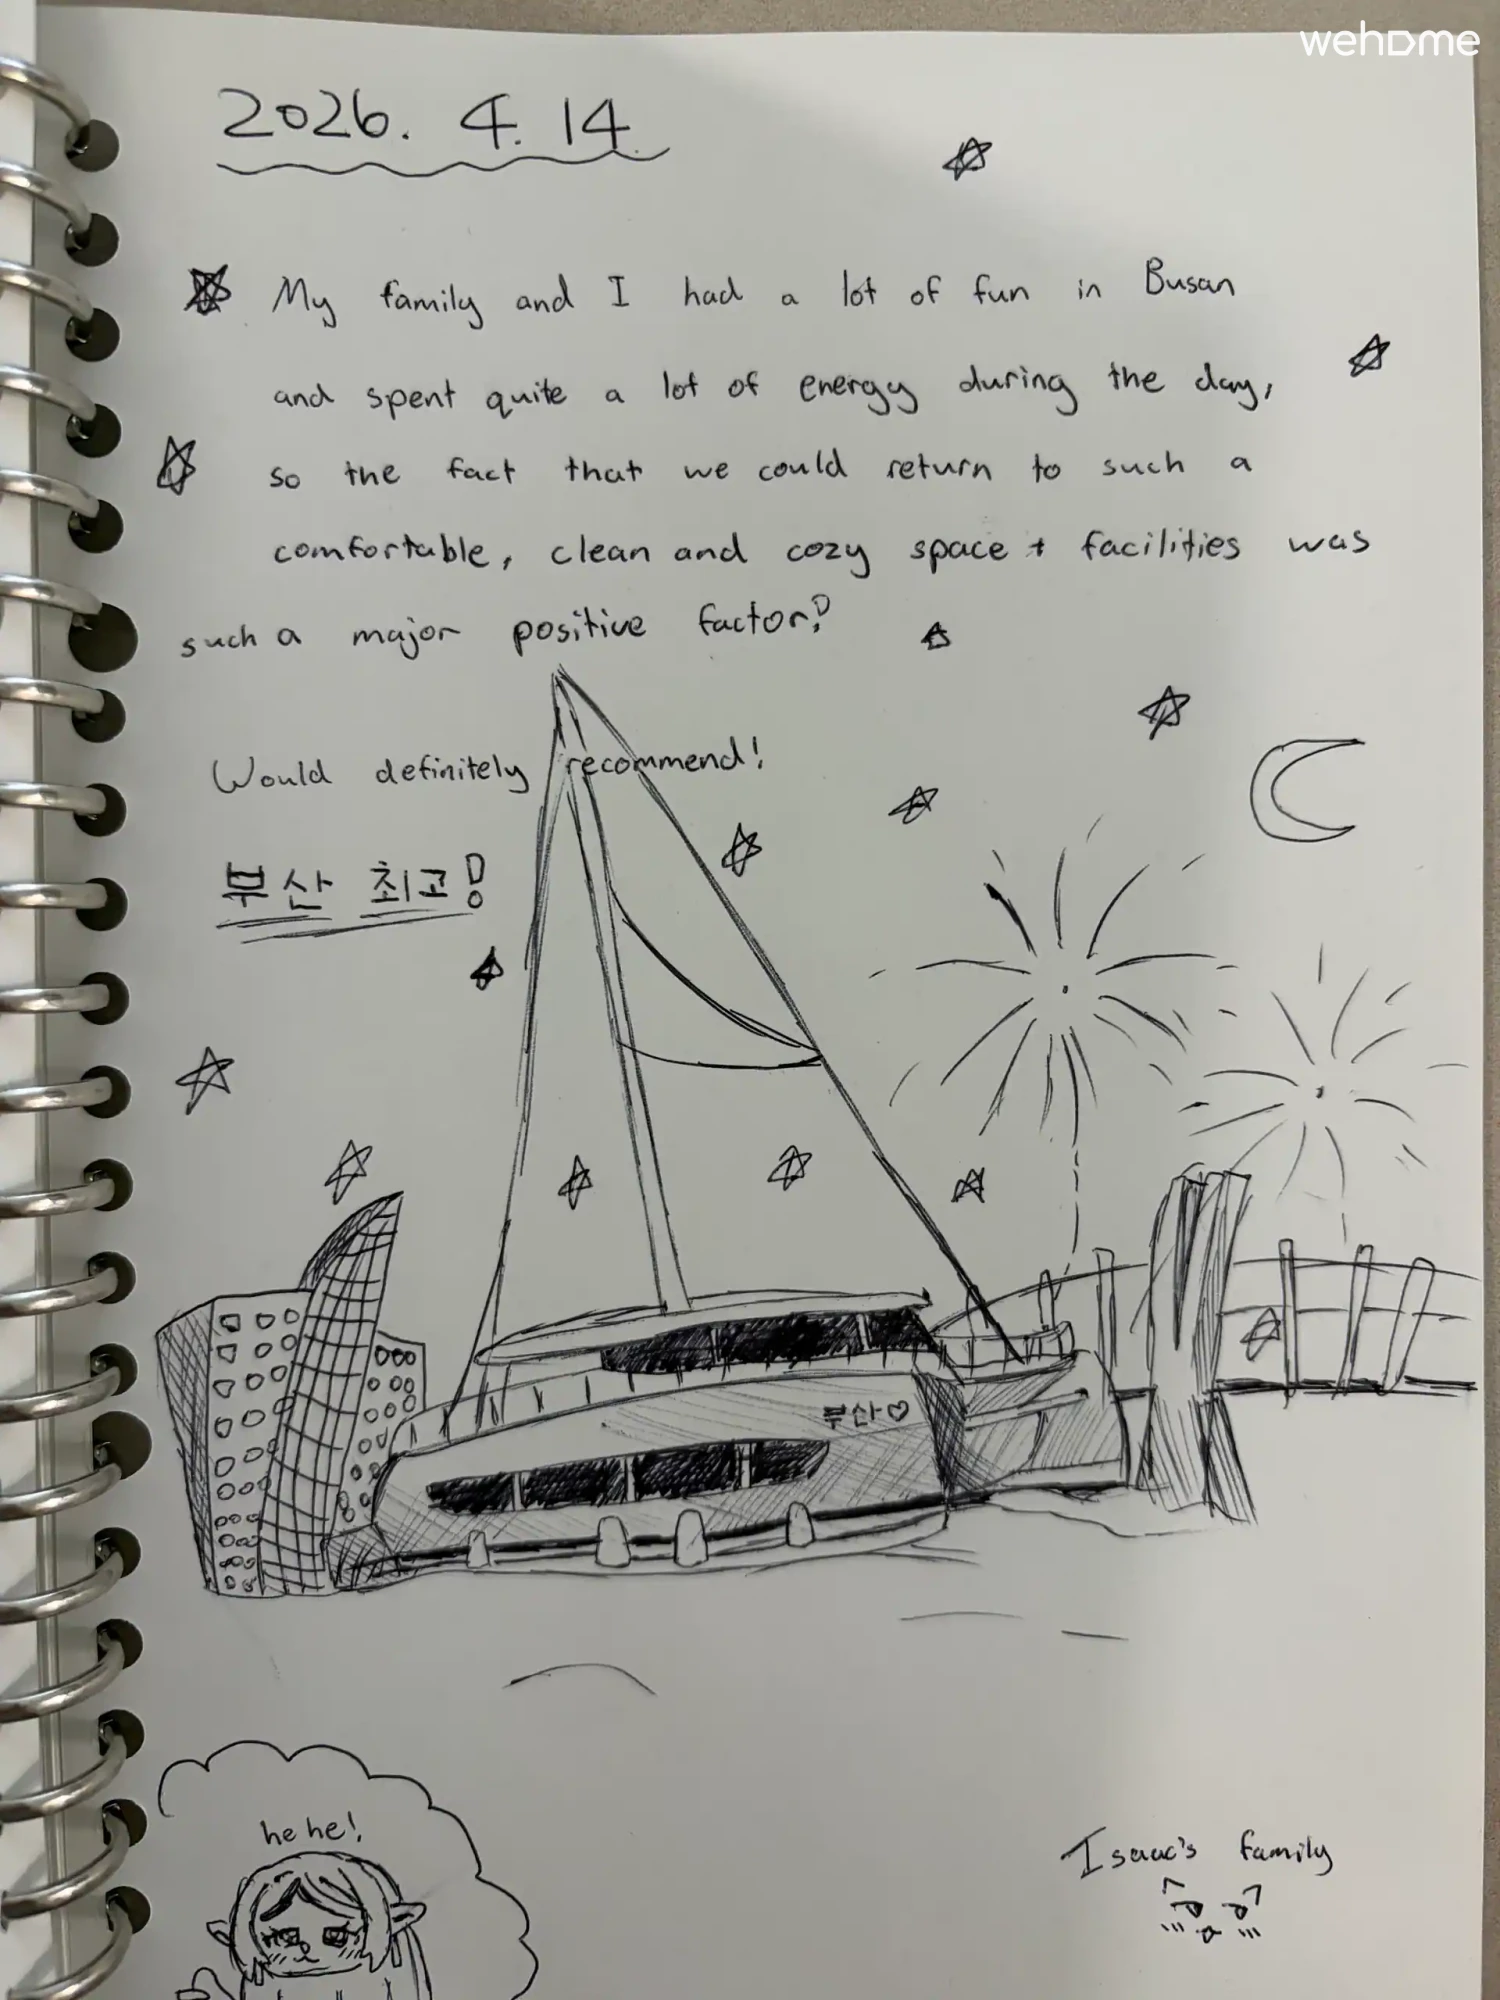 wehome
2026. 4. 14.
My family and I had a lot of fun in Busan
and spent quite a lot of energy during the day,
so the fact that we could return to such a
comfortable, clean and cozy space + facilities was
such a major positive factor!
Would definitely recommend!
부산 최고!
부산♡
hehe!
Isaac's family